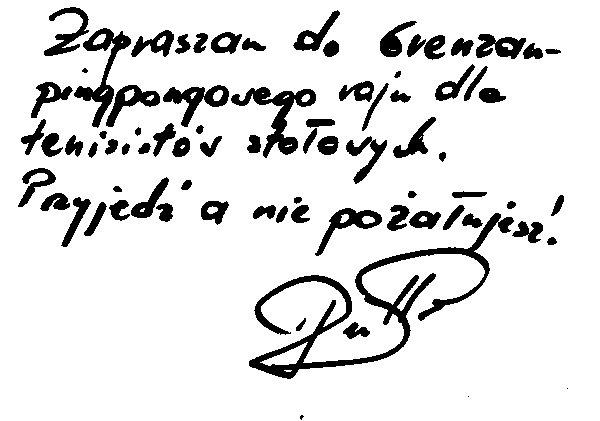 Zapraszam do Grenzau-
pingpongowego raju dla
tenisistów stołowych.
Przyjedź a nie pożałujesz!